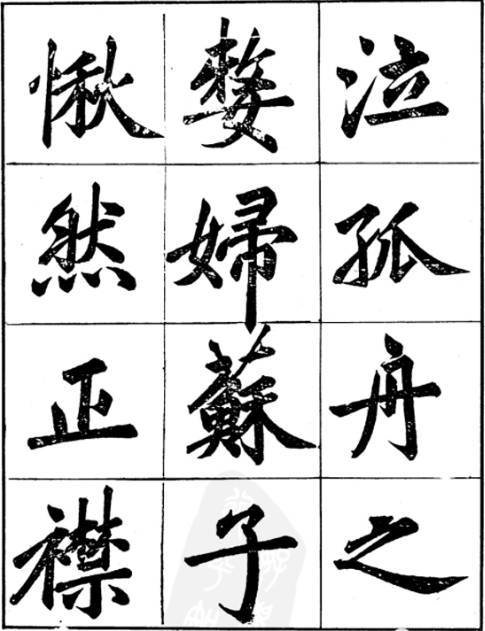 泣孤舟之
嫠婦蘇子
愀然正襟